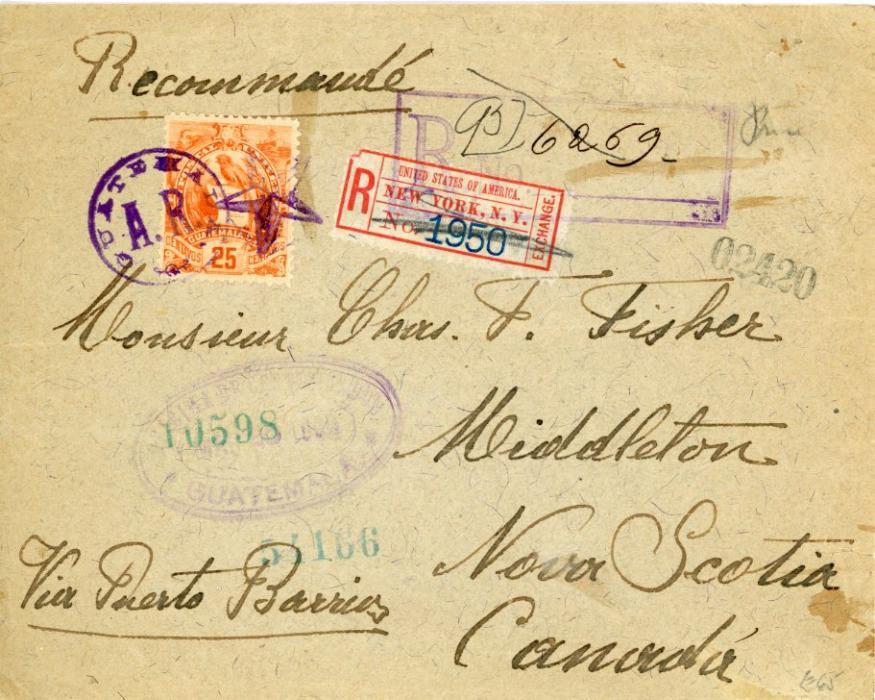 Recommandé
R No
6269
GUATEMALA
A.R.
GUATEMALA
CENTAVOS 25 CENTAVOS
R
UNITED STATES OF AMERICA.
NEW YORK, N. Y.
No. 1950
EXCHANGE.
02420
Monsieur Chas. F. Fisher
10598
GUATEMALA
Middleton
54166
Nova Scotia
Via Puerto Barrios
Canadá